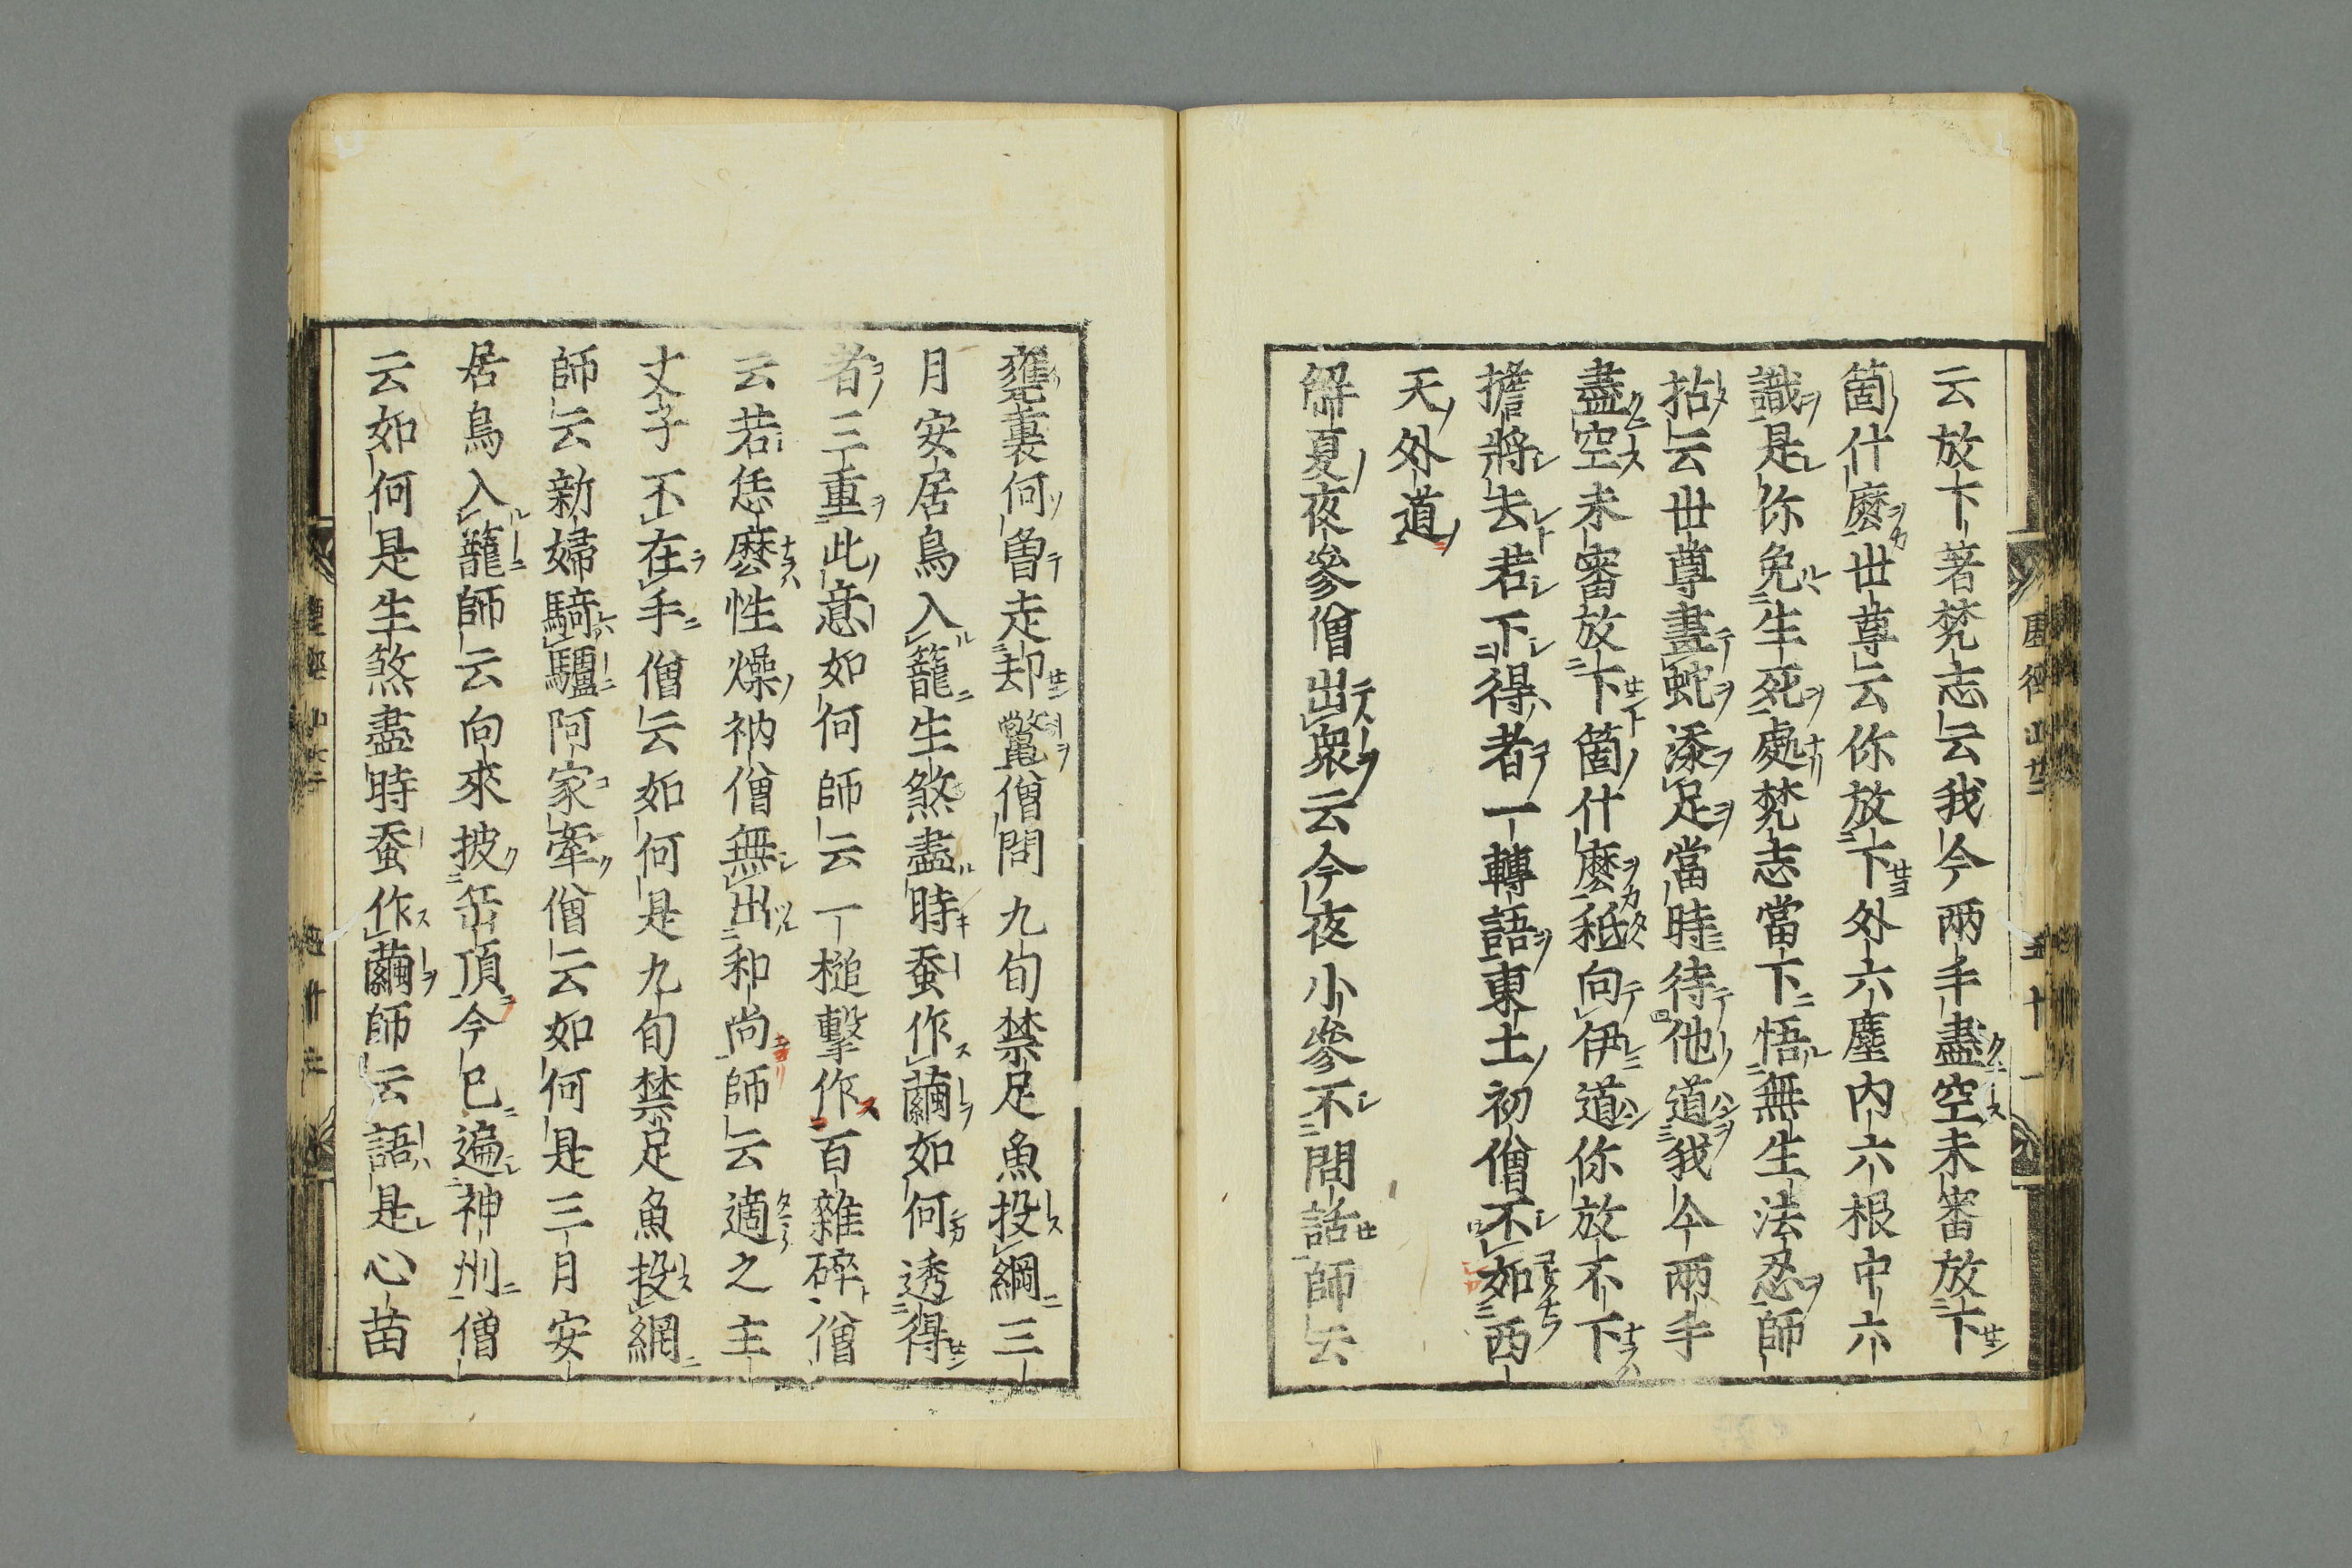 云放下著梵志云我今兩手盡空未審放下
箇什麼世尊云你放下外六塵内六根中六
識是你免生死處梵志當下悟無生法忍師
拈云世尊畫蛇添足當時待他道我今兩手
盡空未審放下箇什麼秪向伊道你放不下
擔將去若下得者一轉語東土初僧不如西
天外道
解夏夜參僧出衆云今夜小參不問話師云
甕裏何曽走却鼈僧問九旬禁足魚投網三
月安居鳥入籠生煞盡時蚕作繭如何透得
者三重此意如何師云一槌擊作百雜碎僧
云若恁麼性燥衲僧無出和尚師云適之主
丈子不在手僧云如何是九旬禁足魚投網
師云新婦騎驢阿家牽僧云如何是三月安
居鳥入籠師云向來披峦頂今已遍神州僧
云如何是生煞盡時蚕作繭師云語是心苗